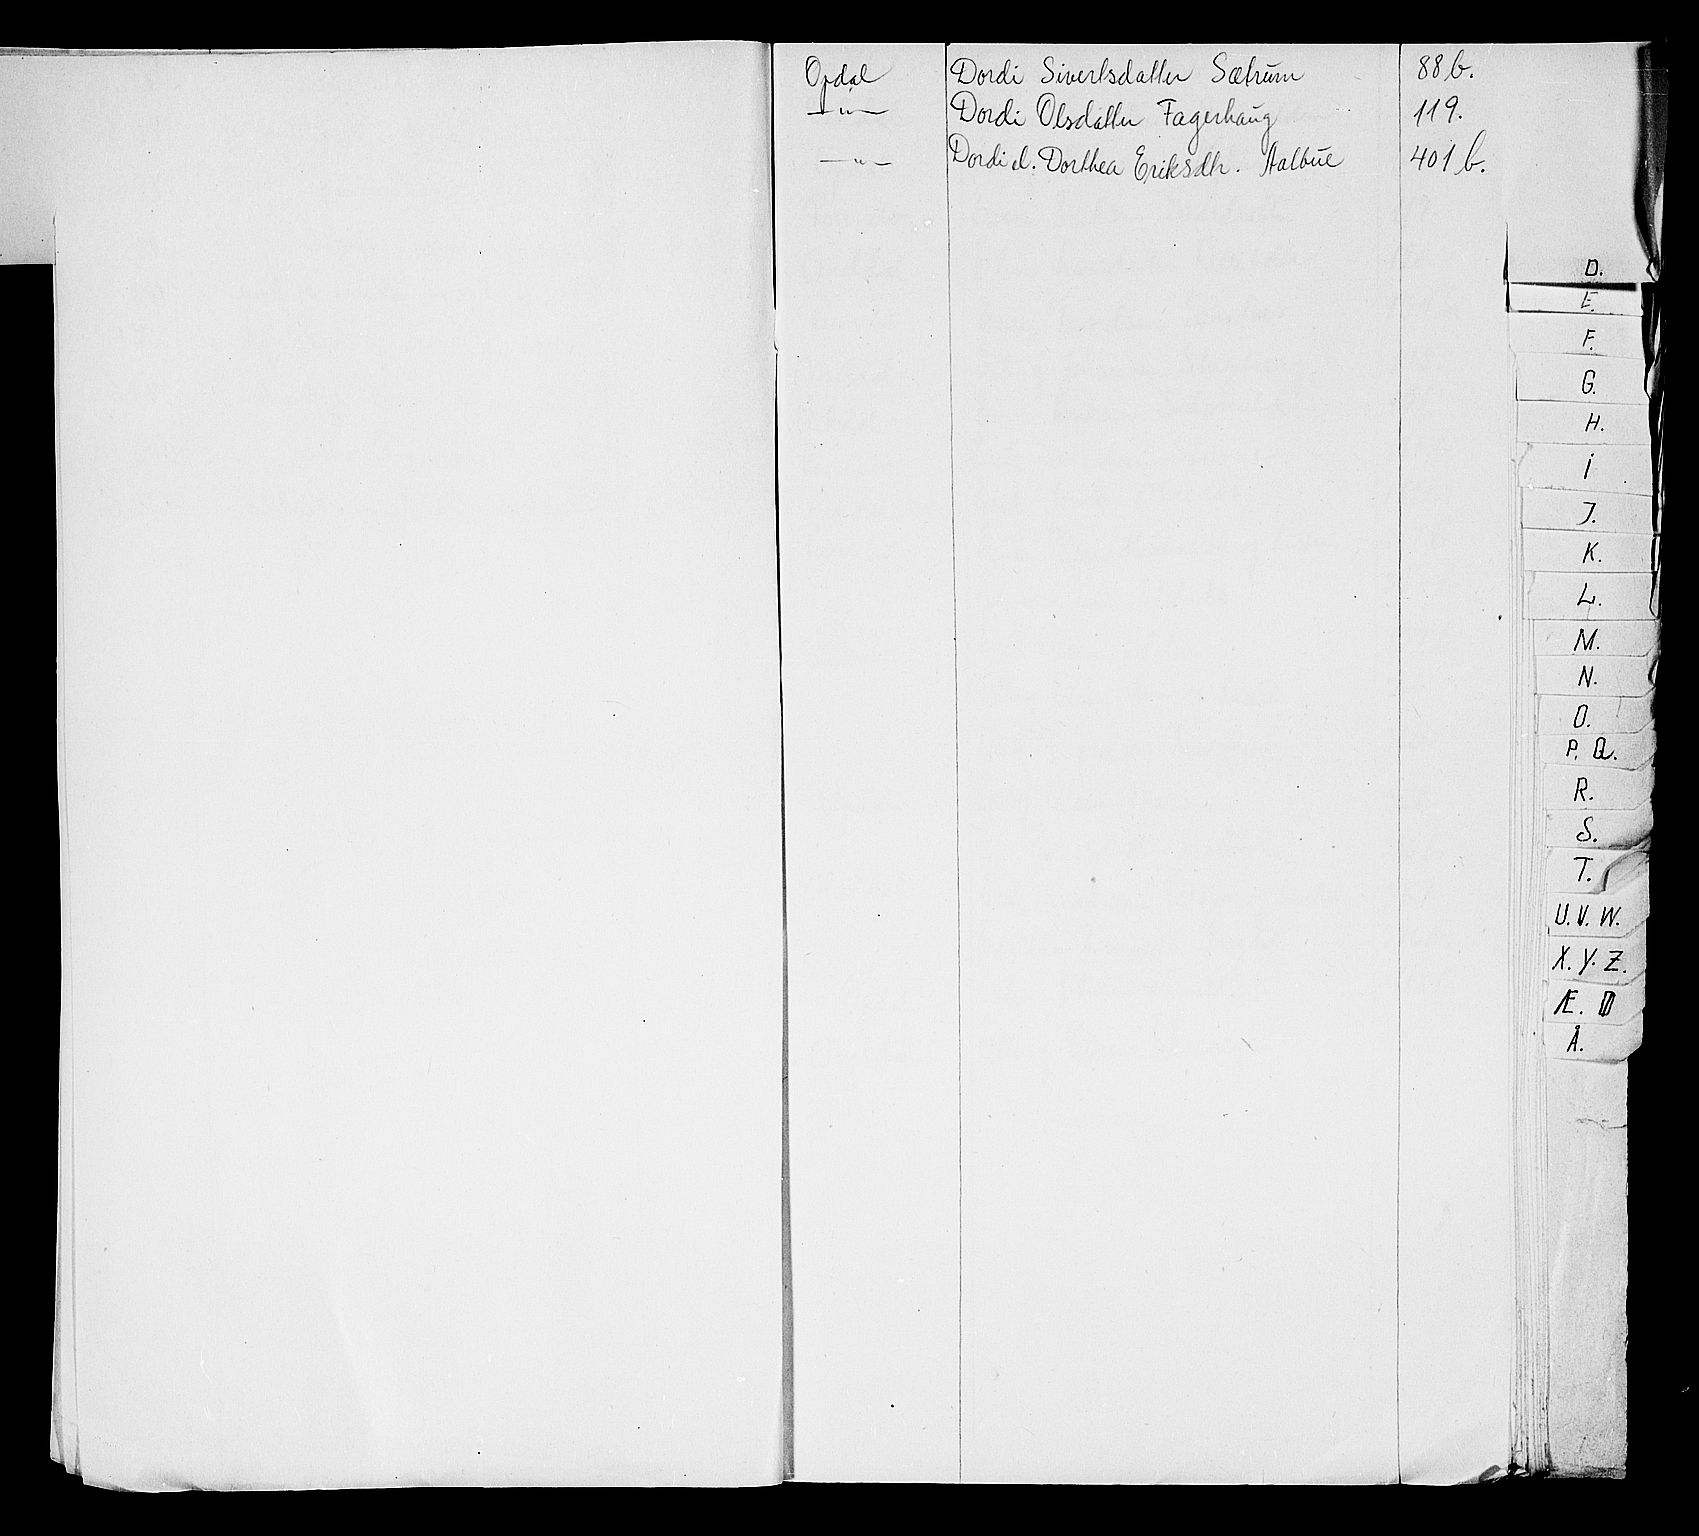 Opdal Dordi Sivertsdatter Sætrum 88 b.
—„— Dordi Olsdatter Fagerhaug 119.
—„— Dordi el. Dorthea Eriksdtr. Aalbue 401 b.
D.
E.
F.
G.
H.
I
J.
K.
L.
M.
N.
O.
P. Q.
R.
S.
T.
U. V. W.
X. Y. Z.
Æ. Ø
Å.